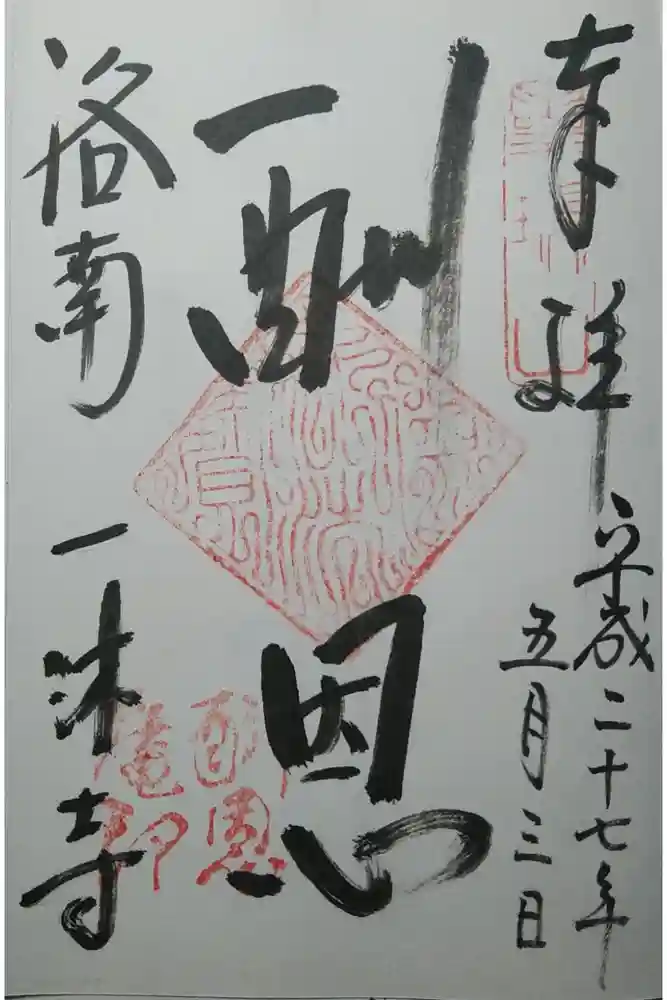 奉拝
平成二十七年
五月三日
酬恩
洛南
一休寺
酬恩
庵印